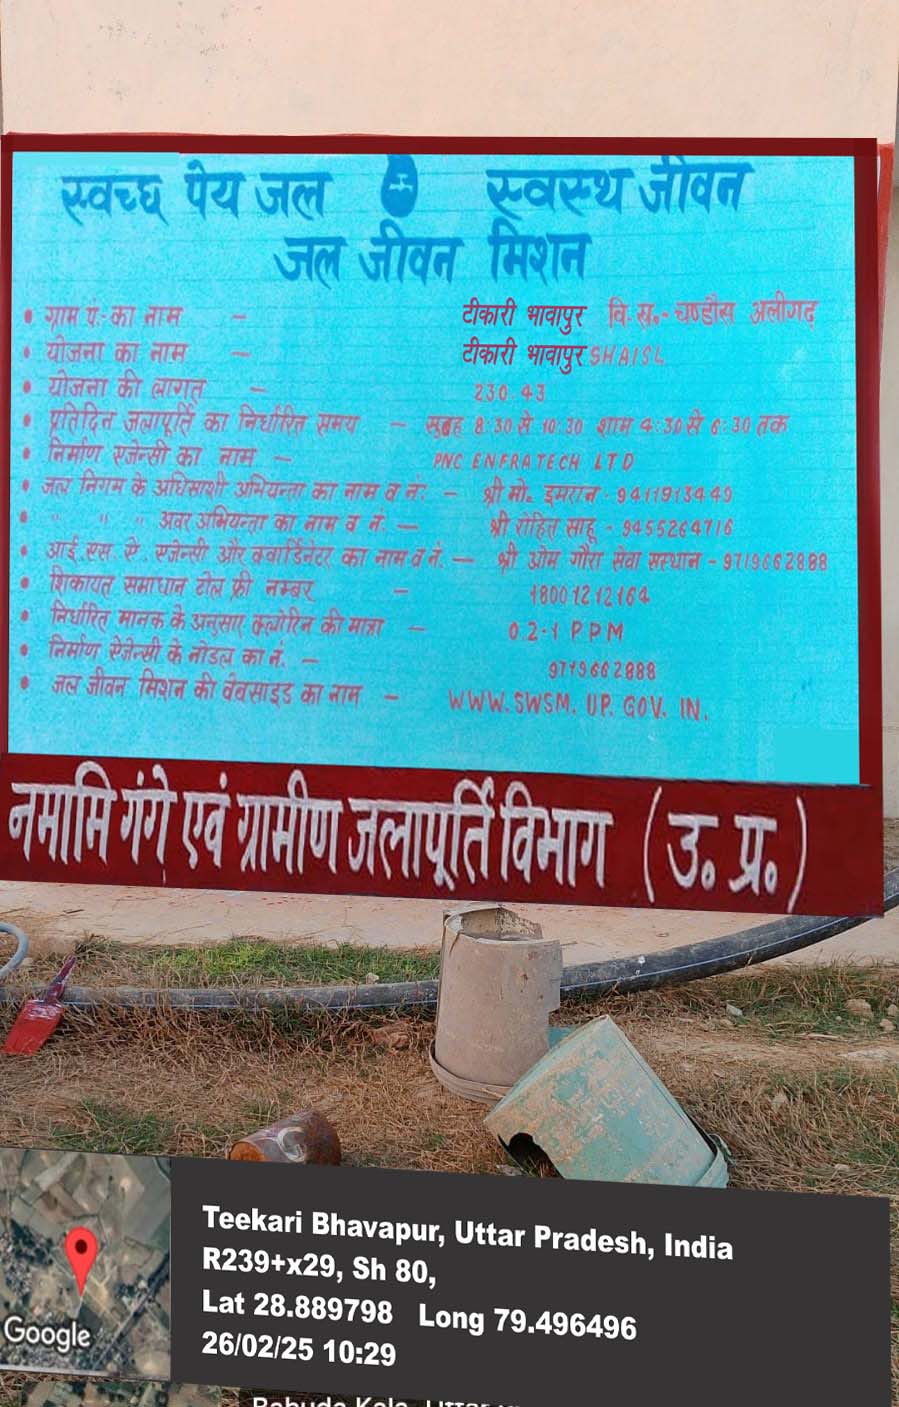 स्वच्छ पेय जल स्वस्थ जीवन
जल जीवन मिशन
• ग्राम पं.-का नाम - टीकारी भावापुर वि. ख.- चण्डौस अलीगढ़
• योजना का नाम - टीकारी भावापुर SHAISL
• योजना की लागत - 230.43
• प्रतिदिन जलापूर्ति का निर्धारित समय - सुबह 8:30 से 10:30 शाम 4:30 से 6:30 तक
• निर्माण एजेन्सी का नाम - PNC ENFRATECH LTD
• जल निगम के अधिसाशी अभियन्ता का नाम व नं: - श्री मो. इमरान - 9411913449
• " " " अवर अभियन्ता का नाम व नं. - श्री रोहित साहू - 9455264716
• आई. एस. ऐ. एजेन्सी और क्वार्डिनेटर का नाम व नं. - श्री ओम गौरा सेवा सस्थान - 9719662888
• शिकायत समाधान टोल फ्री नम्बर - 18001212164
• निर्धारित मानक के अनुसार क्लोरिन की मात्रा - 0.2-1 PPM
• निर्माण ऐजेन्सी के नोडल का नं. - 9719662888
• जल जीवन मिशन की वेबसाइड का नाम - WWW.SWSM.UP.GOV.IN.
नमामि गंगे एवं ग्रामीण जलापूर्ति विभाग (उ. प्र.)
Teekari Bhavapur, Uttar Pradesh, India
R239+x29, Sh 80,
Lat 28.889798 Long 79.496496
26/02/25 10:29
Google